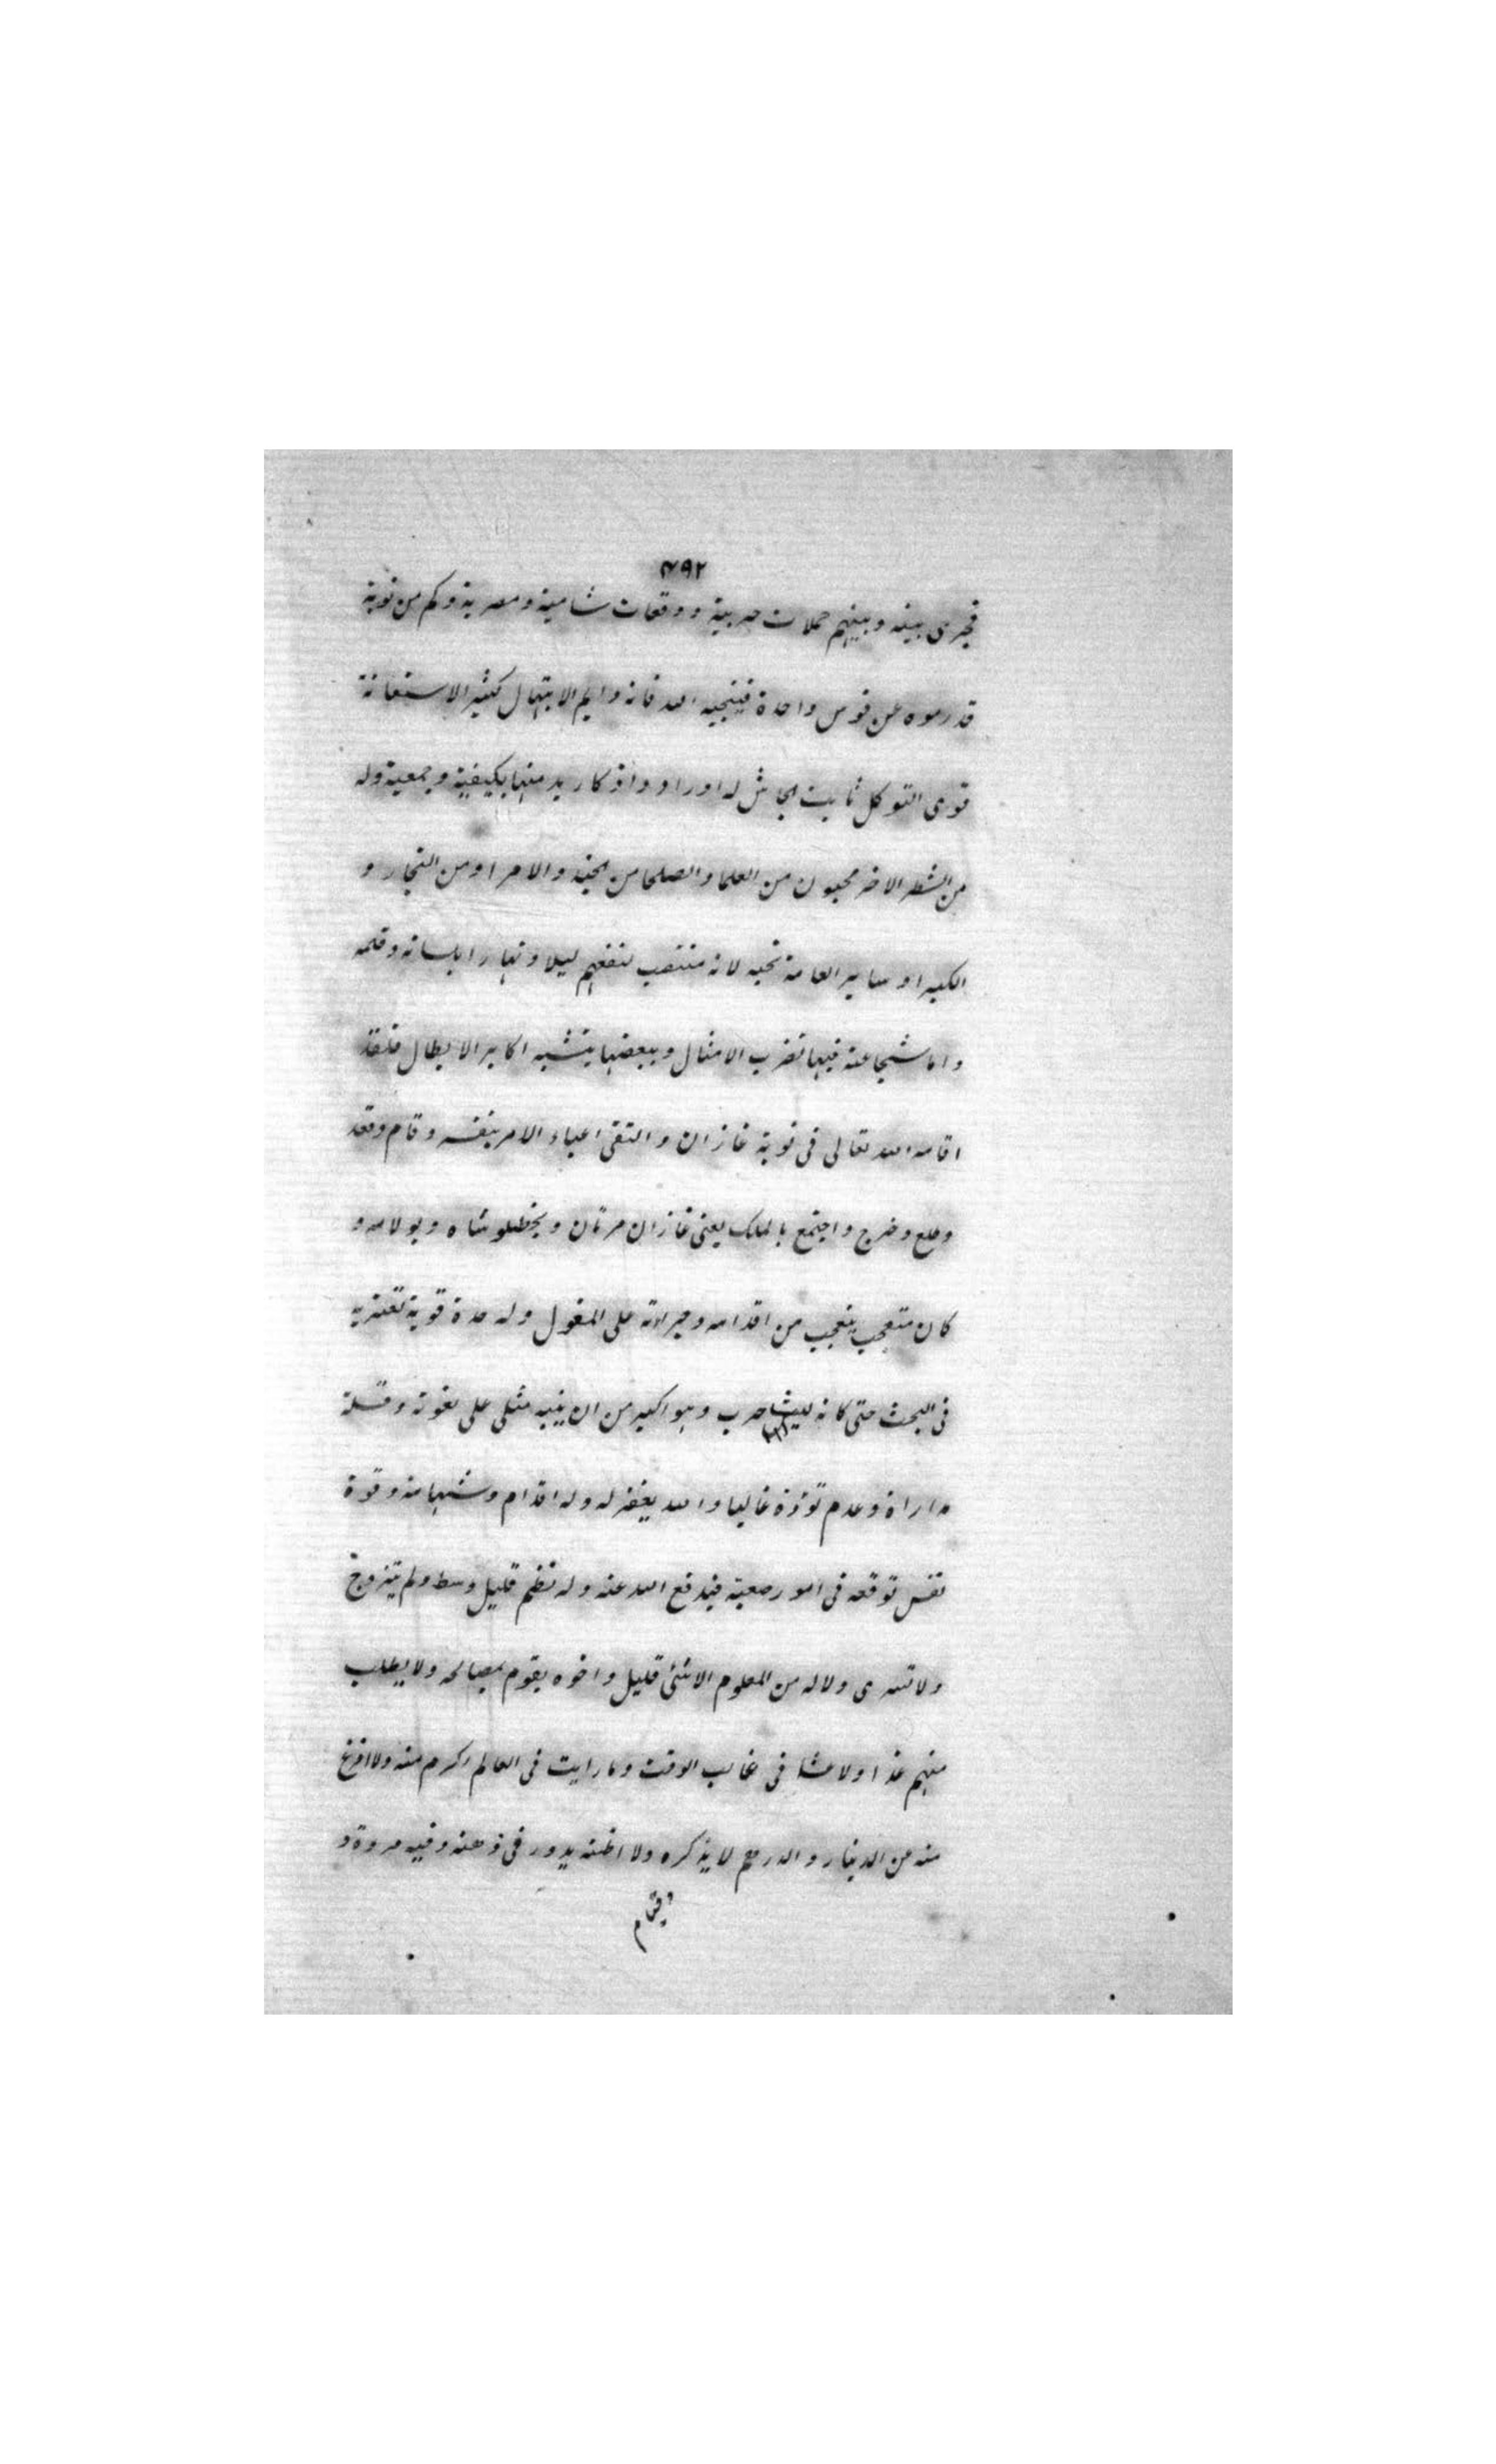 ٤٩٢
فجرى بينه وبينهم حملات حربية ووقعات شامية ومصرية وكم من نوبة
قد رموه عن قوس واحدة فينجيه الله فانه دايم الابتهال كثير الاستغاثة
قوى التوكل ثابت الجاش له اوراد واذكار يدمنها بكيفية وجمعية وله
من الشطر الاخر محبون من العلما والصلحا من الجند والامرا ومن التجار و
الكبرا وساير العامة تحبه لانه منتصب لنفعهم ليلا ونهارا بلسانه وقلمه
واما شجاعته فبها تضرب الامثال وببعضها يتشبه اكابر الابطال فلقد
اقامه الله تعالى فى نوبة غازان والتقى اعباء الامر بنفسه وقام وقعد
وطلع وخرج واجتمع بالملك يعنى غازان مرتان وبخطلو شاه وبولاه و
كان متعجب يتعجب من اقدامه وجراءته على المغول وله حدة قوية تعتريه
فى البحث حتى كانه ليث حرب وهو اكبر من ان ينبه مثلى على نعوته وقلة
مداراة وعدم تؤدة غالبا والله يغفر له وله اقدام وشهامة وقوة
نفس توقعه فى امور صعبة فيدفع الله عنه وله نظم قليل وسط ولم يتزوج
ولا تسرى ولا له من المعلوم الا شئ قليل واخوه يقوم بمصالحه ولا يطلب
منهم غذا ولا عشا فى غالب الوقت وما رايت فى العالم اكرم منه ولا افرغ
منه من الدينار والدرهم لا يذكره ولا اظنه يدور فى ذهنه وفيه مروة و
وقيام